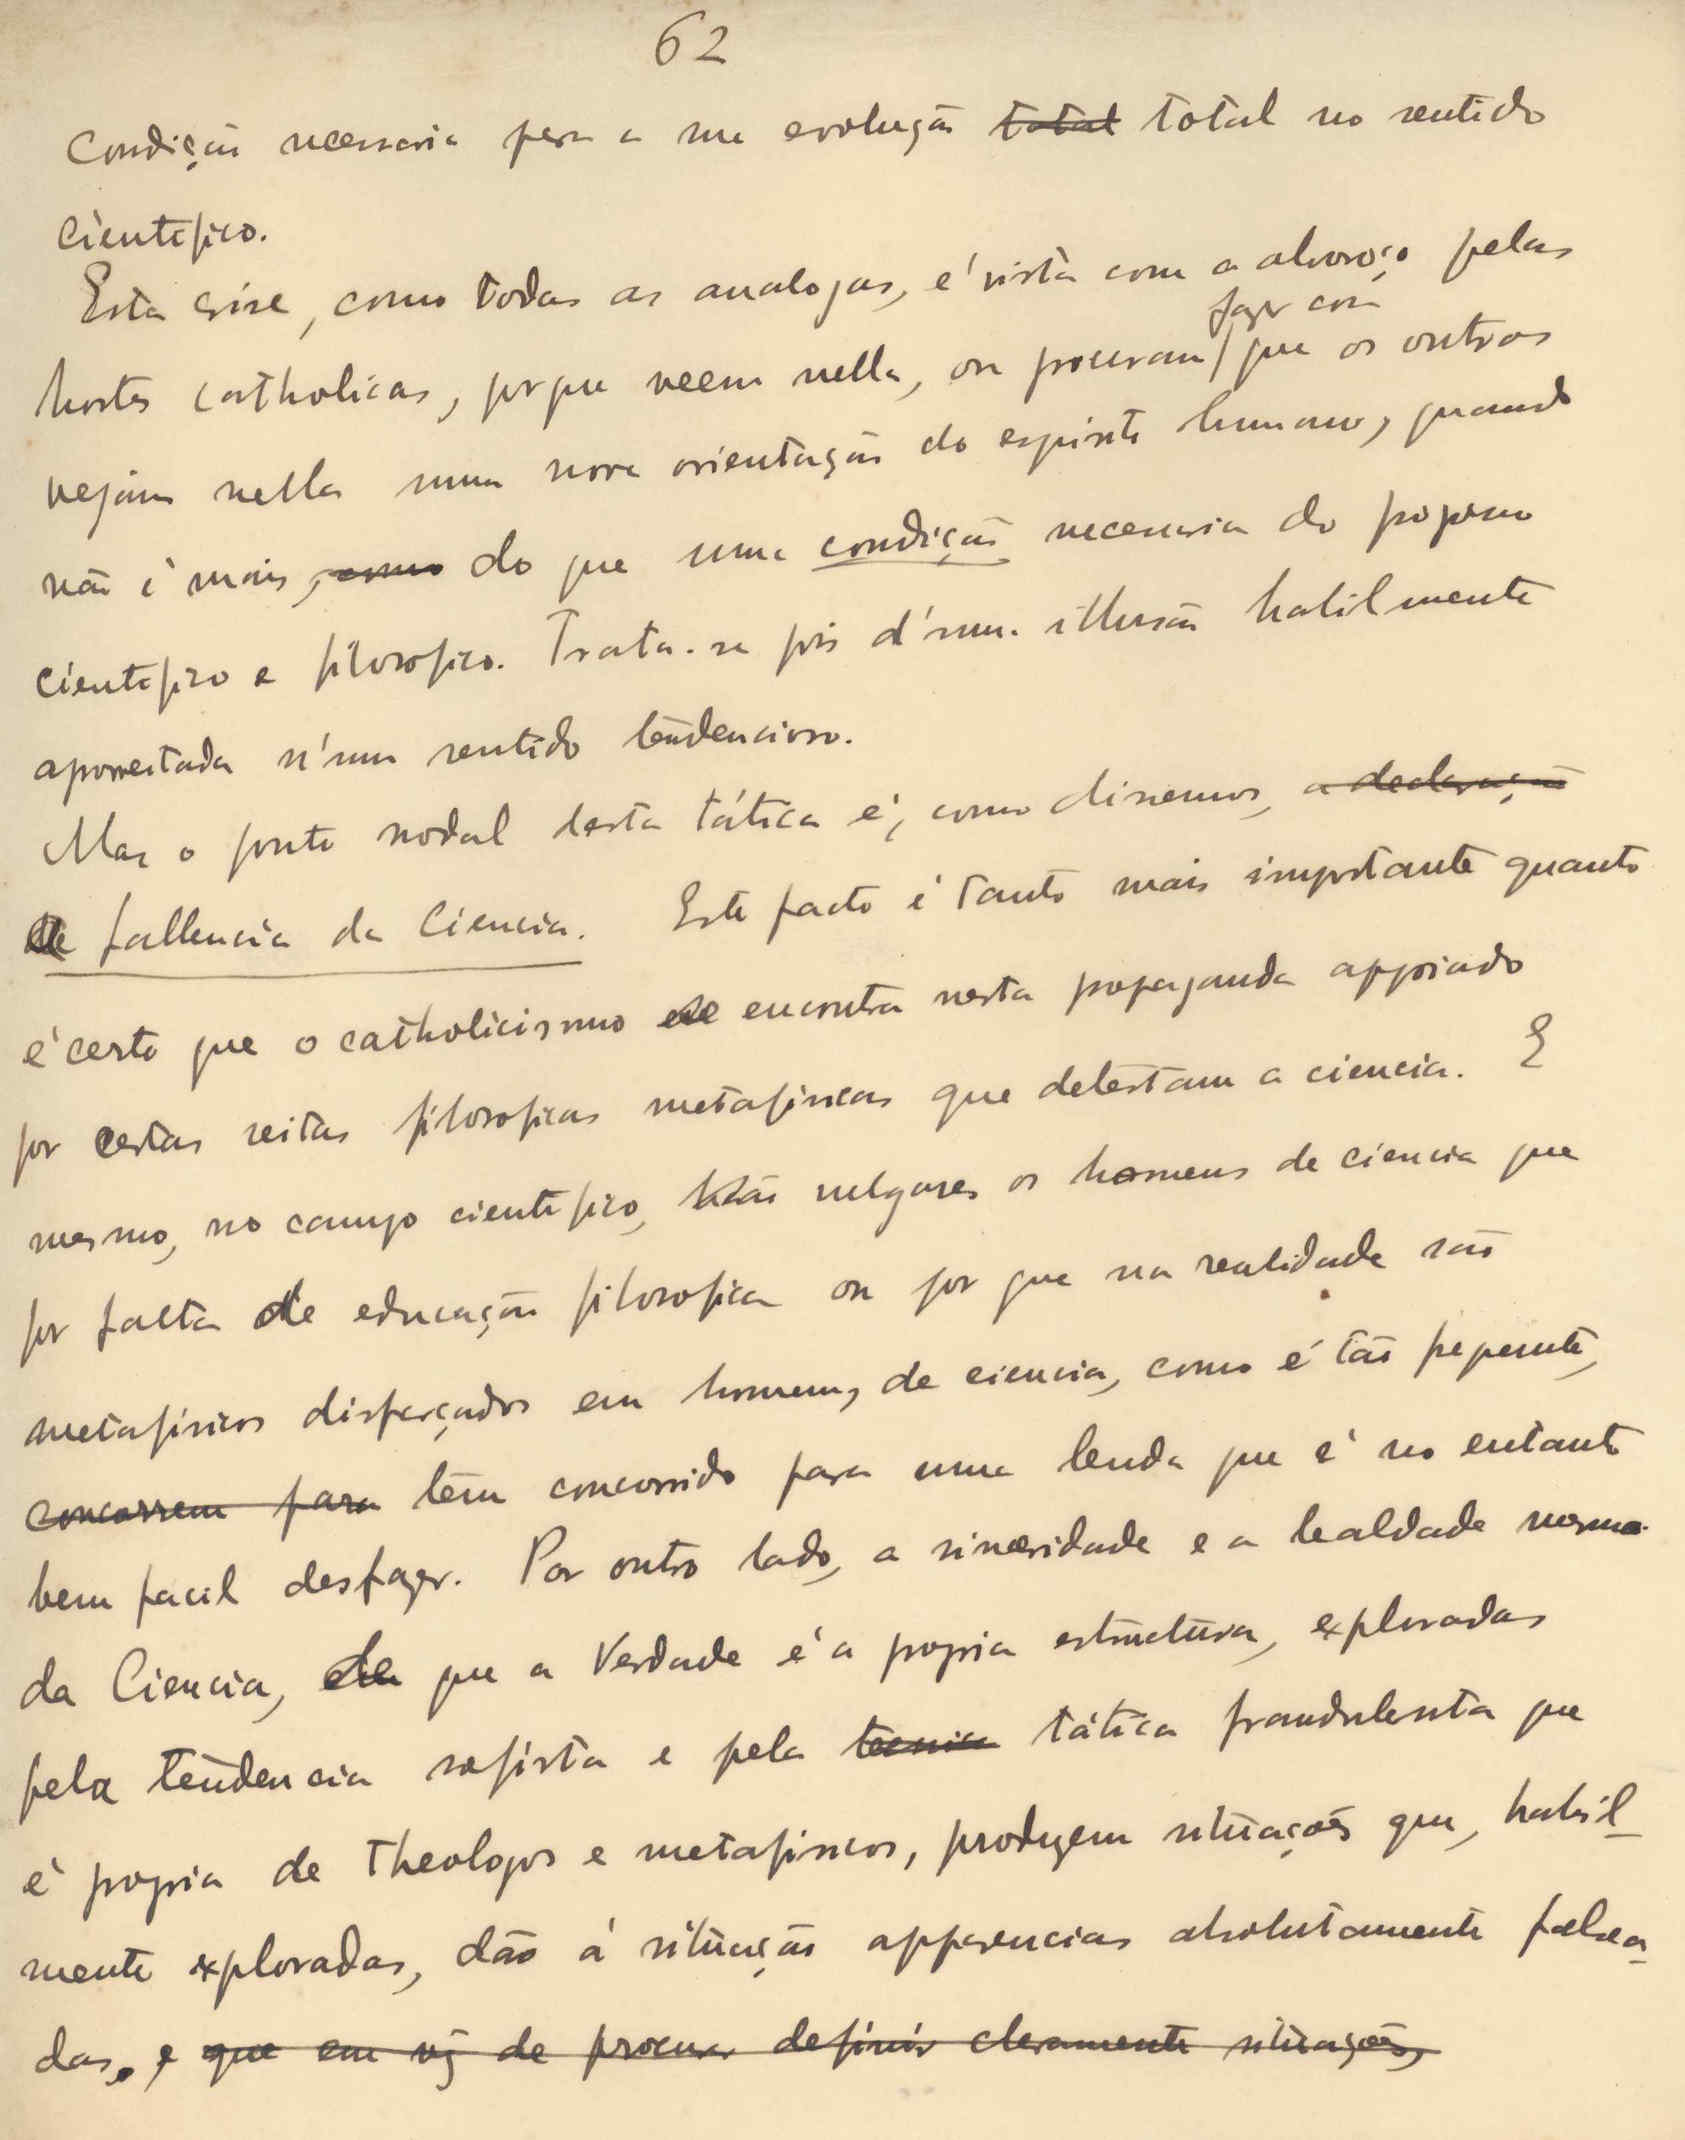 62
condição necessaria para a sua evolução total total no sentido
cientifico.
Esta crise, como todas as analogas, é vista com a alvoroço pelas
fazer com
hostes catholicas, porque veem nella, ou procuram que os outros
vejam nella uma nova orientação do espirito humano, quando
não é mais, como do que uma condição necessaria do progresso
cientifico e filosofico. Trata-se pois d'uma illusão habilmente
aproveitada n'um sentido tendencioso.
Mas o ponto nodal desta tática é, como dissemos, a declaração
de fallencia da Ciencia. Este facto é tanto mais importante quanto
é certo que o catholicismo se encontra nesta propaganda appoiado
por certas seitas filosoficas metafisicas que detestam a ciencia. E
mesmo, no campo cientifico, não vulgares os homens de ciencia que
por falta de educação filosofica ou por que na realidade são
metafisicos disfarçados em homens de ciencia, como é tão frequente,
concorrem para têm concorrido para uma lenda que é no entanto
bem facil desfazer. Por outro lado, a sinceridade e a lealdade mesma
da Ciencia, de que a Verdade é a propria estructura, exploradas
pela tendencia sofista e pela tecnica tática fraudulenta que
é propria de theologos e metafisicos, produzem situações que, habil-
mente exploradas, dão á situação apparencias absolutamente falsea-
das, e que em vez de procurar definir claramente situações,